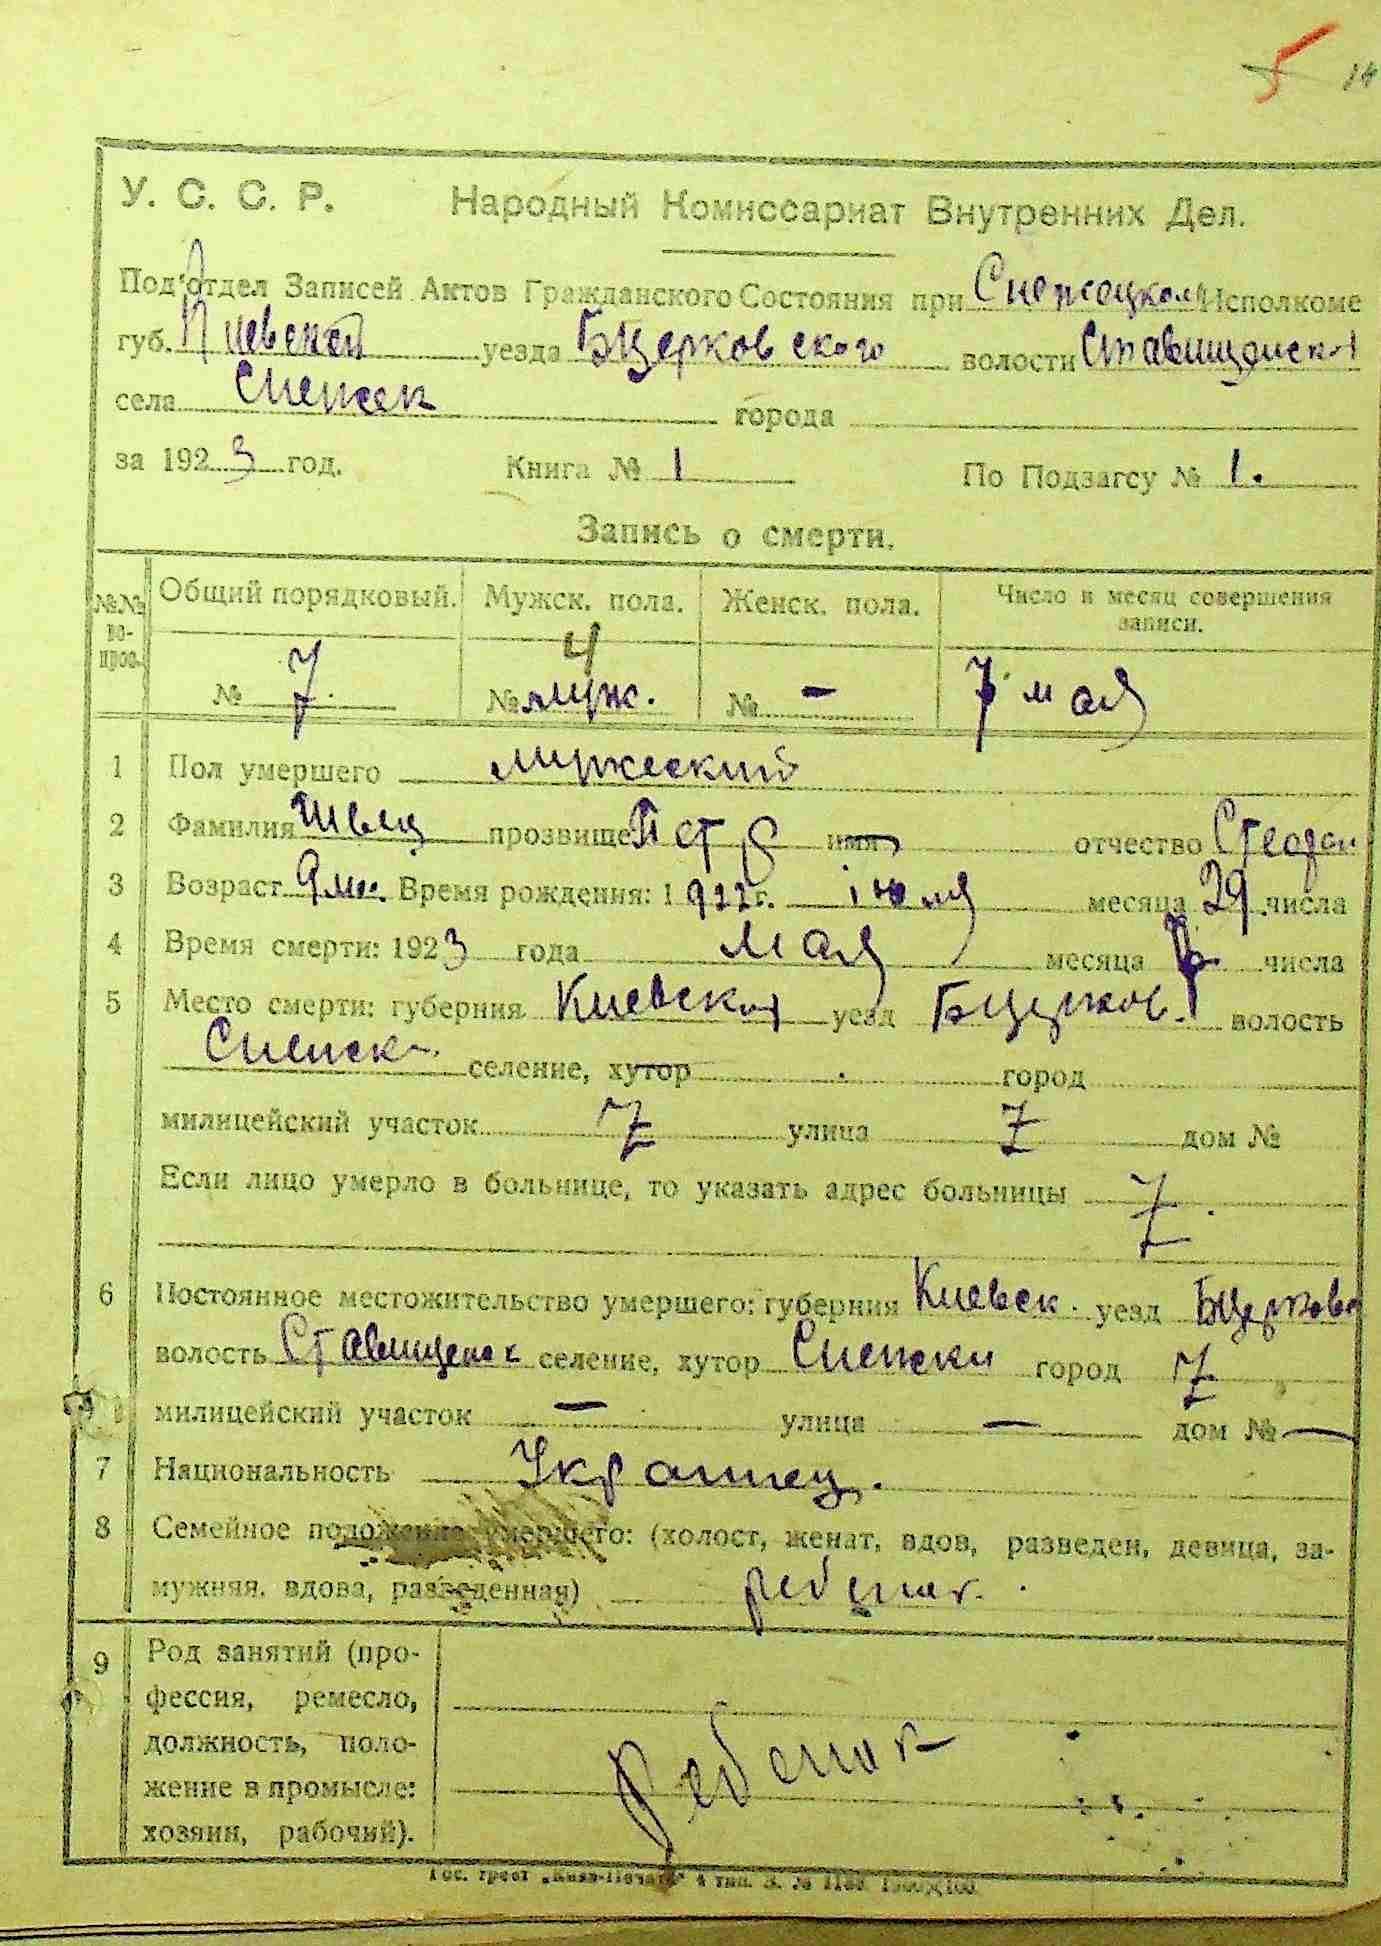 5 14
У. С. С. Р. Народный Комиссариат Внутренних Дел.
Под'отдел Записей Актов Гражданского Состояния при Исполкоме
губ. Киевской уезда Бцерковского волости Ставищенской
села города
за 1923 год. Книга № 1 По Подзагсу № 1.
Запись о смерти.
№№ вопрос. Общий порядковый. Мужск. пола. Женск. пола. Число и месяц совершения записи.
4
№ 7. № муж. № — 7 мая
1 Пол умершего мужеский
2 Фамилия Швец прозвище Петр имя отчество Стефан
3 Возраст 9 м. Время рождения: 1922 г. июля месяца 29 числа
4 Время смерти: 1923 года мая месяца числа
5 Место смерти: губерния Киевская уезд Бцерков. волость
селение, хутор город
милицейский участок улица дом №
Если лицо умерло в больнице, то указать адрес больницы
6 Постоянное местожительство умершего: губерния Киевск. уезд Бцерково
волость Ставищенск селение, хутор город
милицейский участок — улица — дом № —
7 Национальность Украинец.
8 Семейное положение умершего: (холост, женат, вдов, разведен, девица, за-
мужняя, вдова, разведенная) ребенок.
9 Род занятий (про-
фессия, ремесло,
должность, поло-
жение в промысле:
хозяин, рабочий).
ребенок
Гос. трест „Киев-Печать" 4 тип. З. №